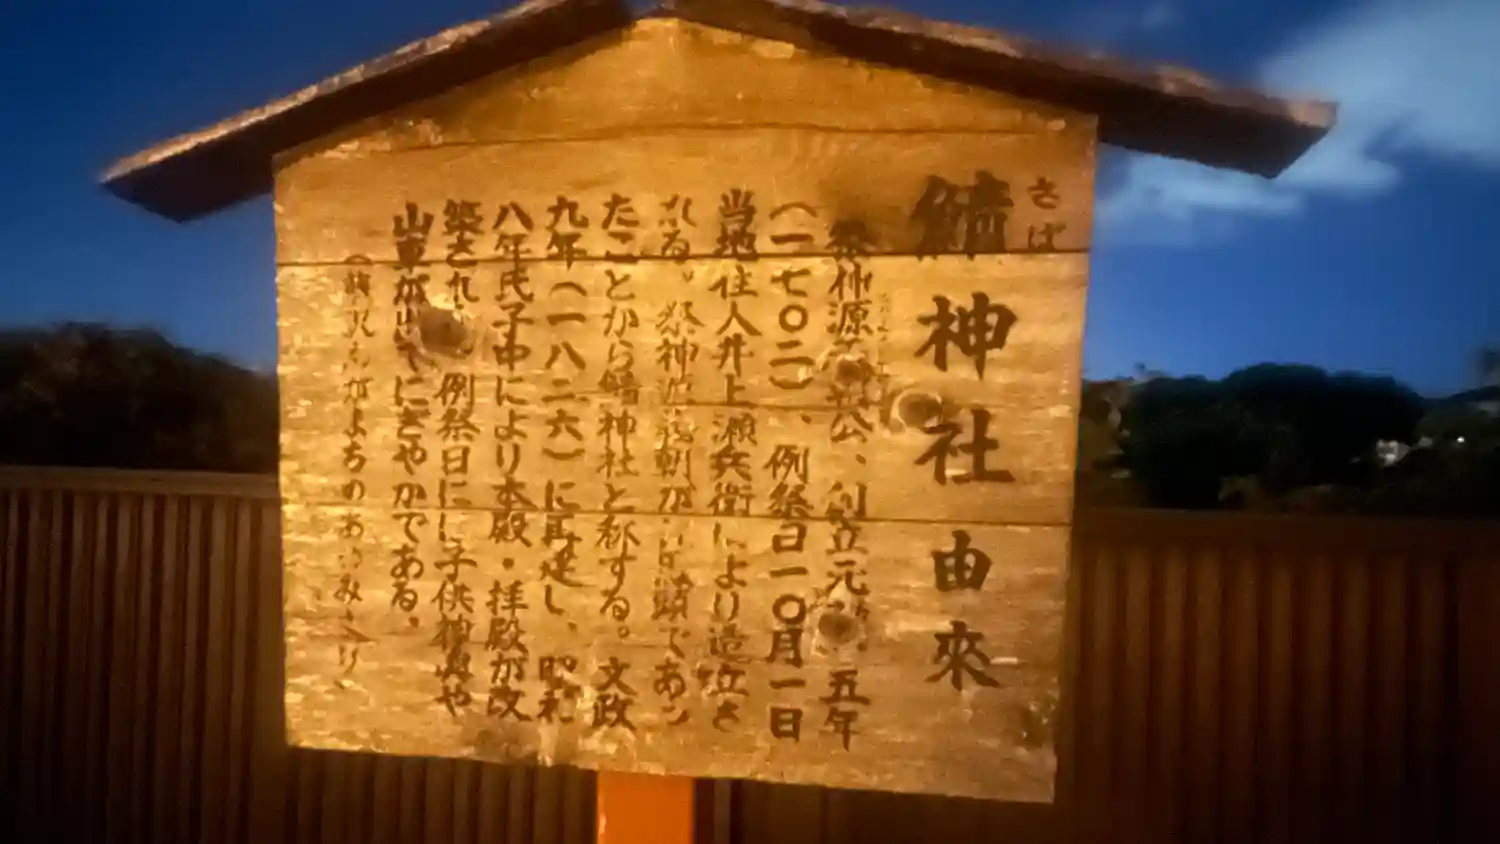 さば
鯖神社由来
祭神源義朝公、創立元禄五年
(一七〇二)、例祭日一〇月一日
当地住人井上瀬兵衛により造立さ
れる。祭神源義朝が
たことから鯖神社と称する。文政
九年(一八二六)に再建し、昭和
八年氏子中により本殿・拝殿が改
築され、例祭日には子供神輿や
山車が出てにぎやかである。